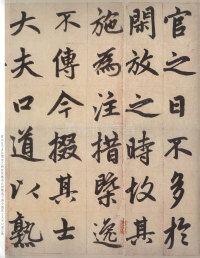 官之日不多於
閑放之時故其
施為注措槩逸
不傳今掇其士
大夫口道以熟